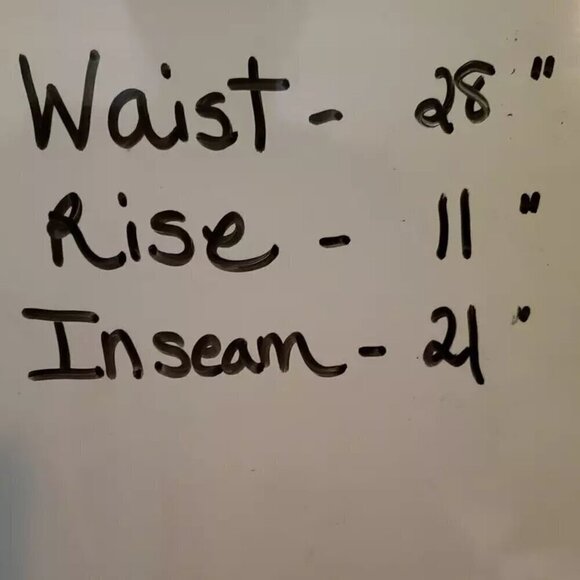 Waist - 28"
Rise - 11"
Inseam - 21"